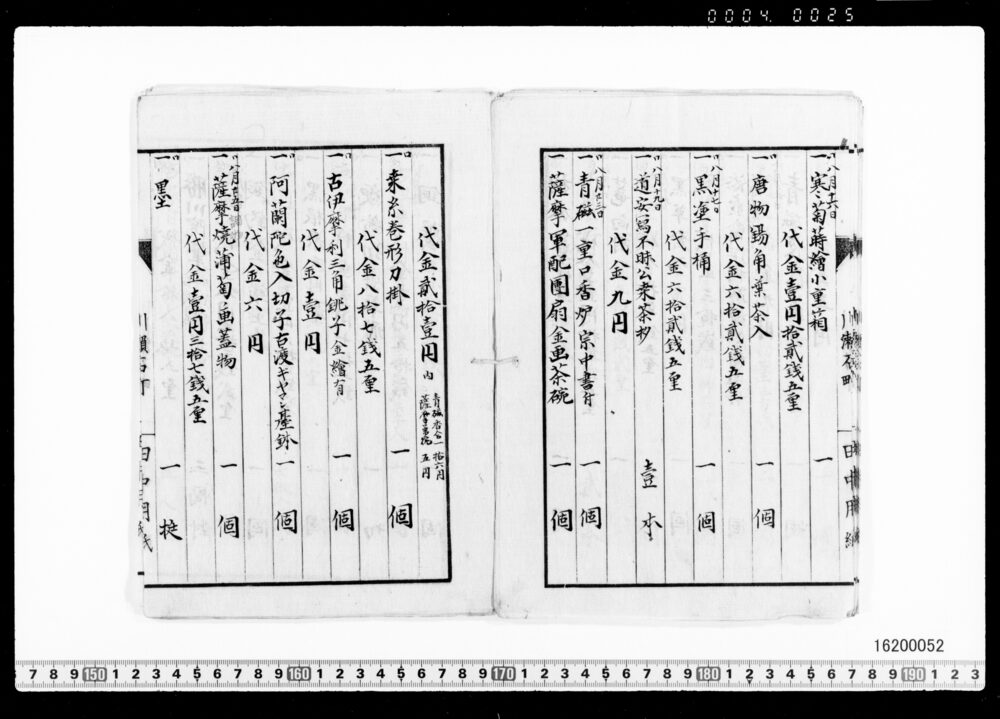 0004 0025
八月十六日
一 寒菊蒔繪小重箱 一
代金壹円拾貳銭五厘
一 唐物錫角葉茶入 一個
代金六拾貳銭五厘
八月十七日
一 黒塗手桶 一個
代金六拾貳銭五厘
八月十九日
一 道安写不昧公茶杓 壹本
代金九円
八月廿三日
一 青磁一重口香炉宗中書付 一個
一 薩摩軍配團扇金画茶碗 一個
代金貳拾壹円 内
青磁香合一 拾六円
薩摩茶碗 五円
一 糸巻形刀掛 一個
代金八拾七銭五厘
一 古伊摩利三角銚子金繪有 一個
代金壹円
一 阿蘭陀色入切子古渡ギヤマン臺鉢 一個
代金六円
一 薩摩焼蒲萄画蓋物 一個
代金壹円三拾七銭五厘
一 墨 一挺
田中用紙
16200052
7 8 9 150 1 2 3 4 5 6 7 8 9 160 1 2 3 4 5 6 7 8 9 170 1 2 3 4 5 6 7 8 9 180 1 2 3 4 5 6 7 8 9 190 1 2 3